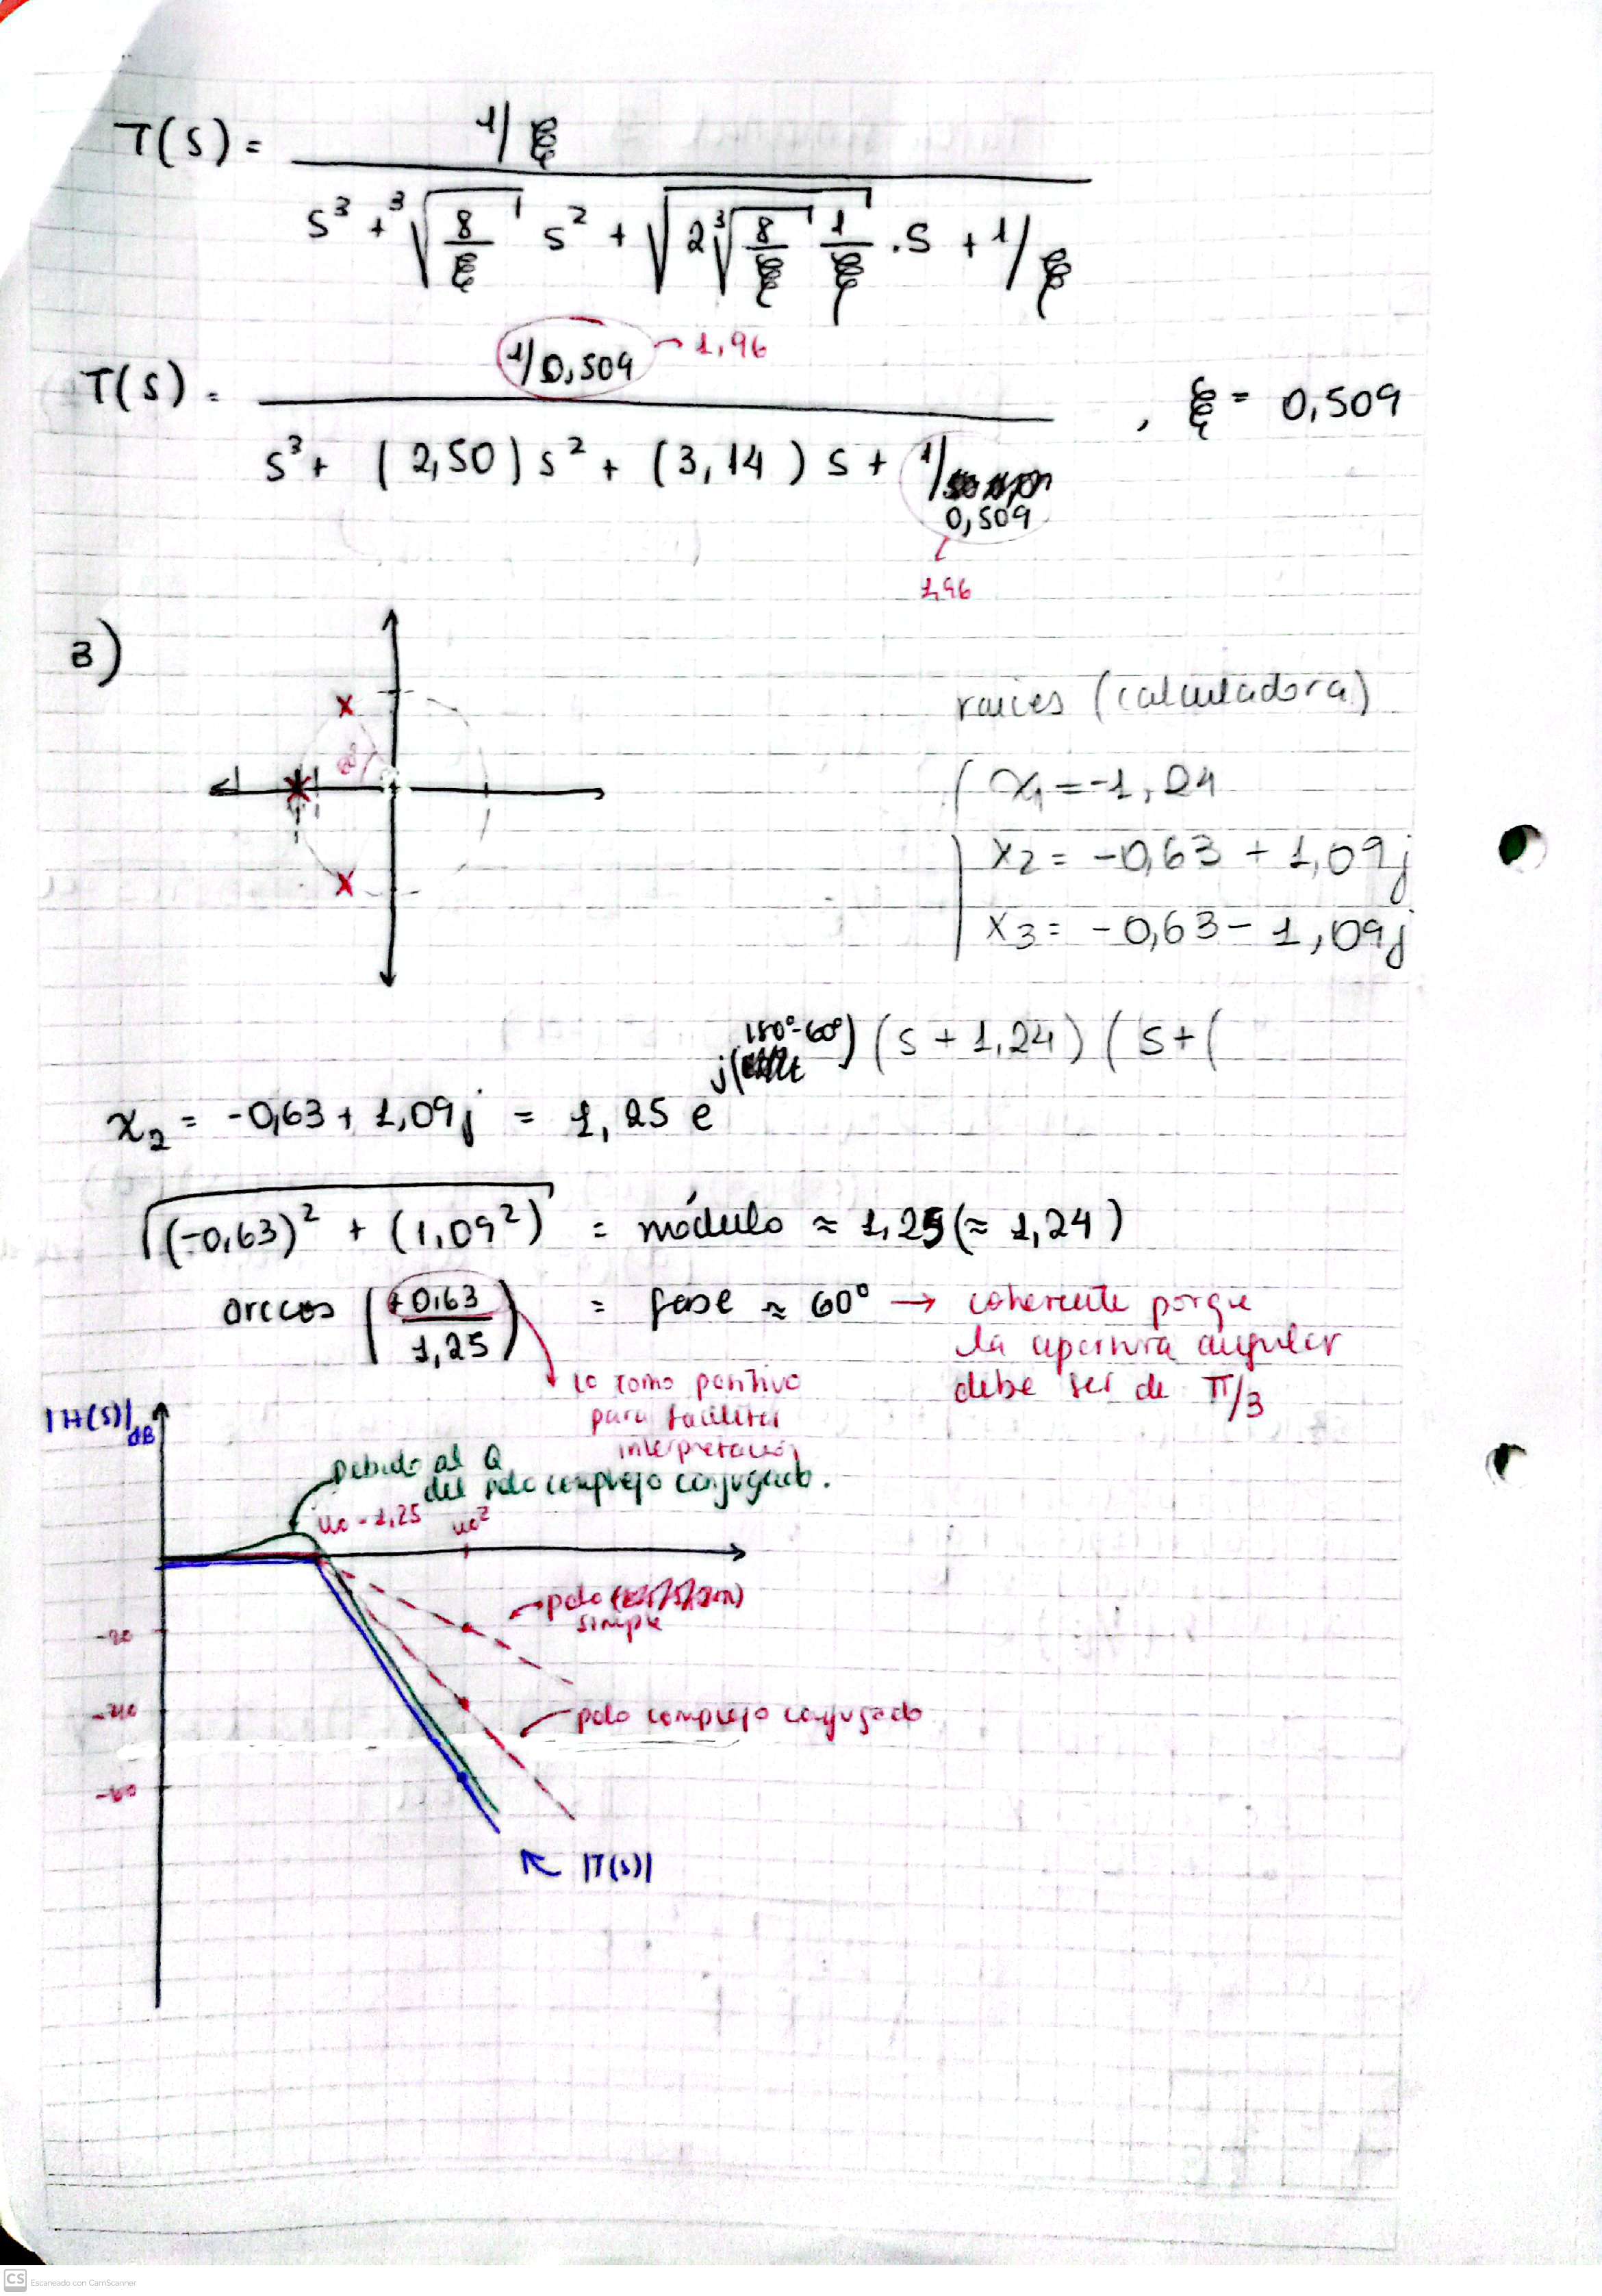 T(s) = 1/ξ
s³ + ³√(8/ξ) s² + √(2 ³√(8/ξ) 1/ξ) . s + 1/ξ
1/0,509 → 1,96
T(s) = , ξ = 0,509
s³ + (2,50) s² + (3,14) s + 1/
0,509
1,96
B)
raices (calculadora)
x₁ = -1,24
x₂ = -0,63 + 1,09j
x₃ = -0,63 - 1,09j
(s + 1,24) (s + (
x₂ = -0,63 + 1,09j = 1,25 e^j(180°-60°)
√((-0,63)² + (1,09²)) = módulo ≈ 1,25 (≈ 1,24)
arccos (+0,63/1,25) = fase ≈ 60° → coherente porque
la apertura angular
debe ser de π/3
lo tomo positivo
para facilitar
interpretación
|H(s)|dB
Debido al Q
del polo complejo conjugado.
ωc = 1,25 ωc²
polo
simple
-20
-40
polo complejo conjugado
-60
|T(s)|
CS Escaneado con CamScanner